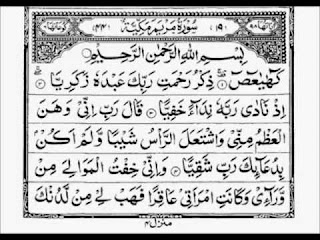 (١٩) سُوْرَةُ مَرْيَمَ مَكِّيَّةٌ (٤٤)
بِسْمِ اللّٰهِ الرَّحْمٰنِ الرَّحِيْمِ
كٓهٰيٰعٓصٓ ۚ ذِكْرُ رَحْمَتِ رَبِّكَ عَبْدَهٗ زَكَرِيَّا
اِذْ نَادٰى رَبَّهٗ نِدَآءً خَفِيًّا قَالَ رَبِّ اِنِّيْ وَهَنَ
الْعَظْمُ مِنِّيْ وَاشْتَعَلَ الرَّاْسُ شَيْبًا وَّلَمْ اَكُنْۢ
بِدُعَآئِكَ رَبِّ شَقِيًّا وَاِنِّيْ خِفْتُ الْمَوَالِيَ مِنْ
وَّرَآءِيْ وَكَانَتِ امْرَاَتِيْ عَاقِرًا فَهَبْ لِيْ مِنْ لَّدُنْكَ
منزل ٤